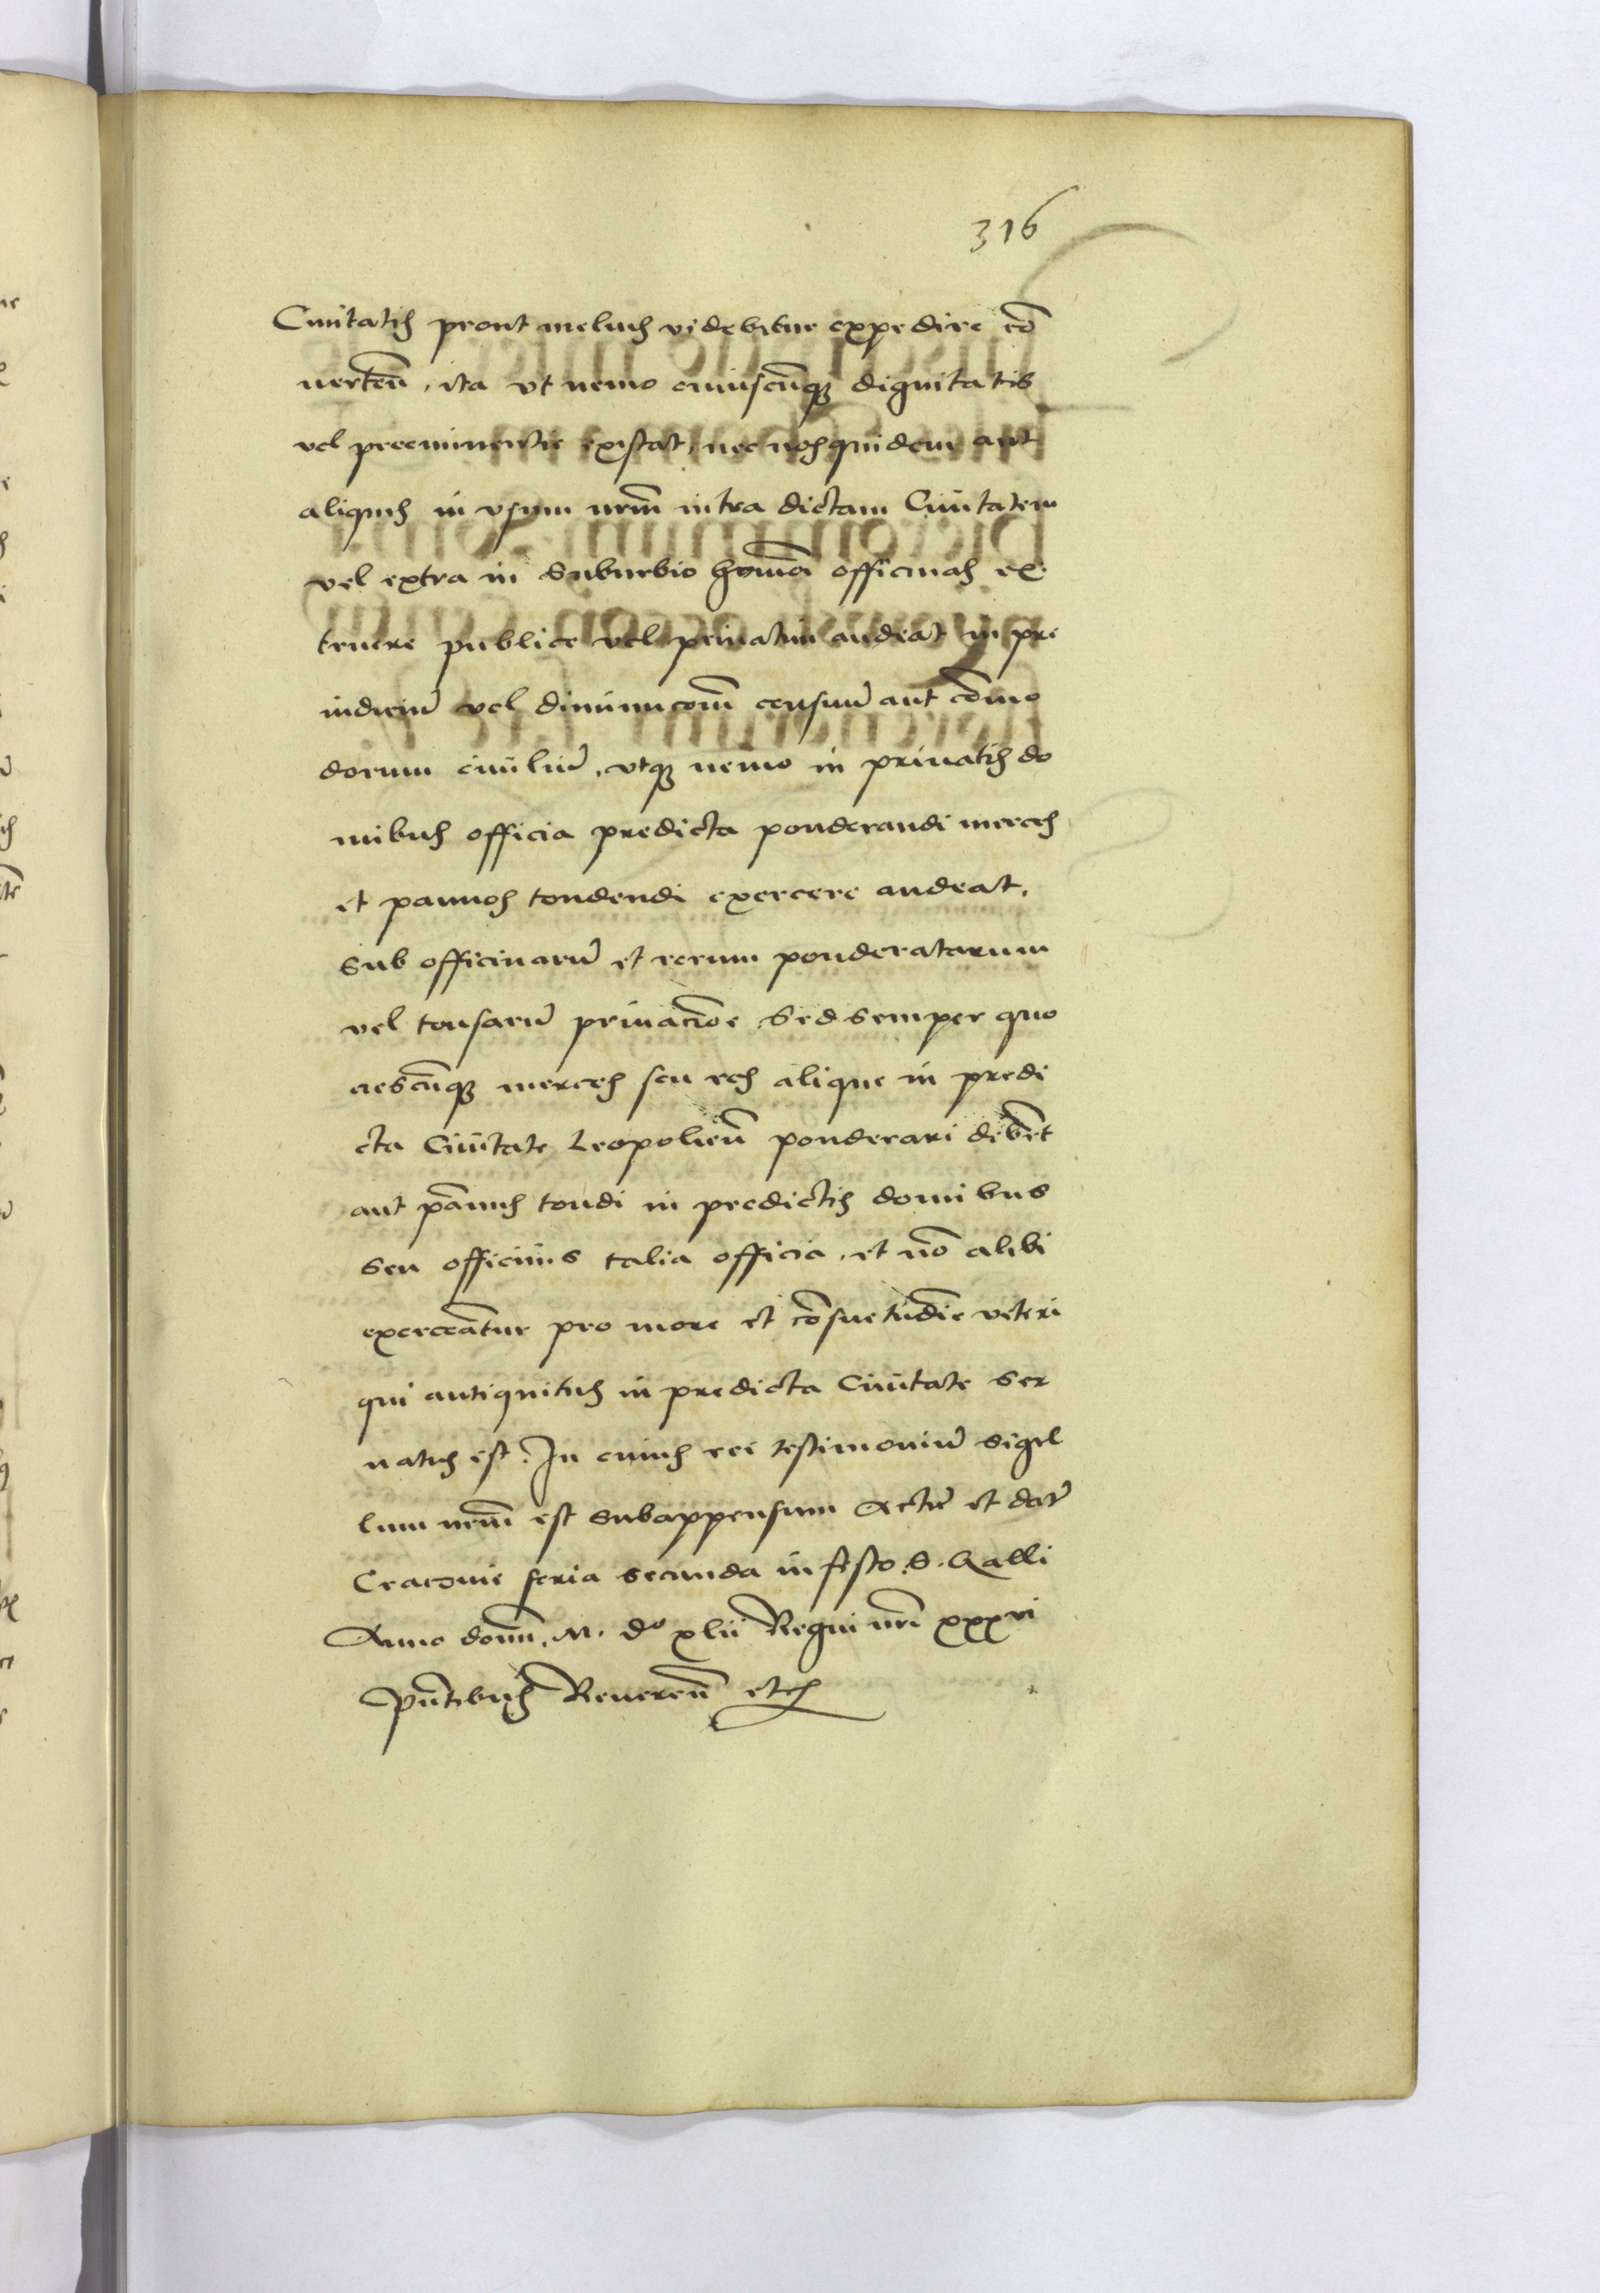 316
Ciuitatis prout melius videbitur expedire cō
uerteñ, ita vt nemo cuiuscūq; dignitatis
vel preeminentie existat, nec nos quidem aut
aliquis in vsum nrm̄ intra dictam Ciuitatem
vel extra in Suburbio officinas ex
truere publice vel priuatim audeat in pre
iudiciū vel diminucoīm censuū aut cōmo
dorum ciuiliū, vtq; nemo in priuatis do
mibus officia predicta ponderandi merces
et pannos tondendi exercere audeat,
Sub officinarū et rerum ponderatarum
vel tonsarū priuacione Sed semper quo
ciescūq; merces seu res alique in predi
cta Ciuitate Leopolieñ ponderari debēt
aut pānus tondi in predictis domibus
seu officinis talia officia, et nō alibi
exerceāntur pro more et cōsuetudīe veteri
qui antiquitus in predicta Ciuitate ser
uatus est. In cuius rei testimoniū Sigil
lum nrm̄ est Subappensum Actū et datū
Cracouie feria secunda in festo S. Galli
Anno domi. M. d° xlii Regni nri xxxvi
Pn̄tibus Reuereñ etc